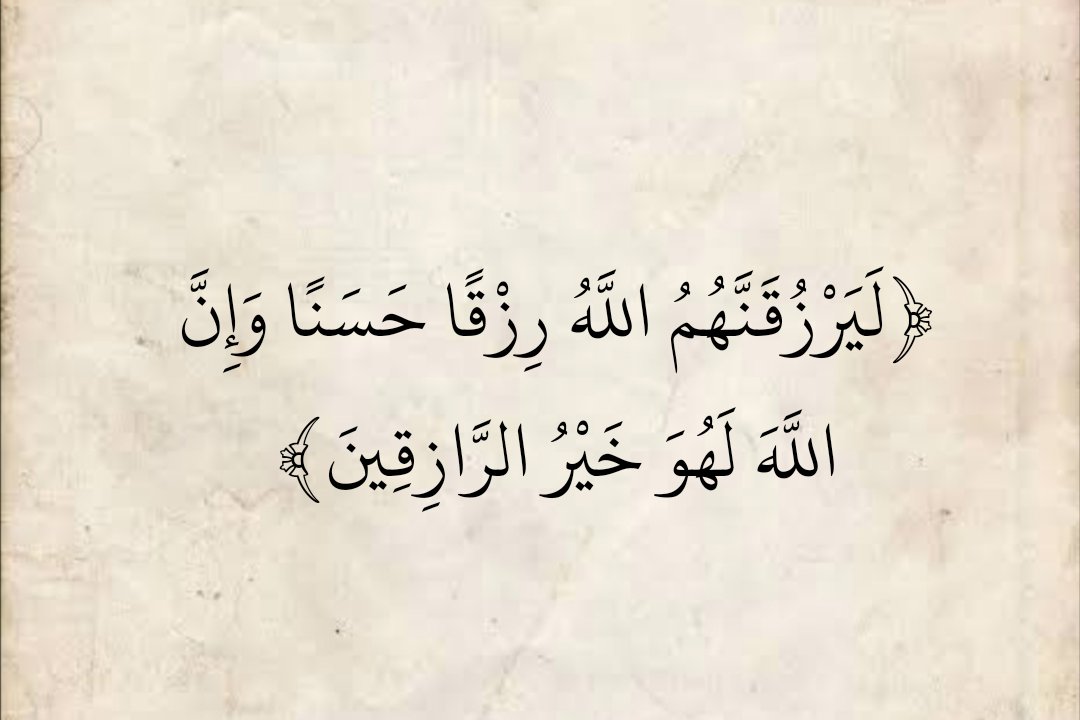 ﴿لَيَرْزُقَنَّهُمُ اللَّهُ رِزْقًا حَسَنًا وَإِنَّ
اللَّهَ لَهُوَ خَيْرُ الرَّازِقِينَ﴾